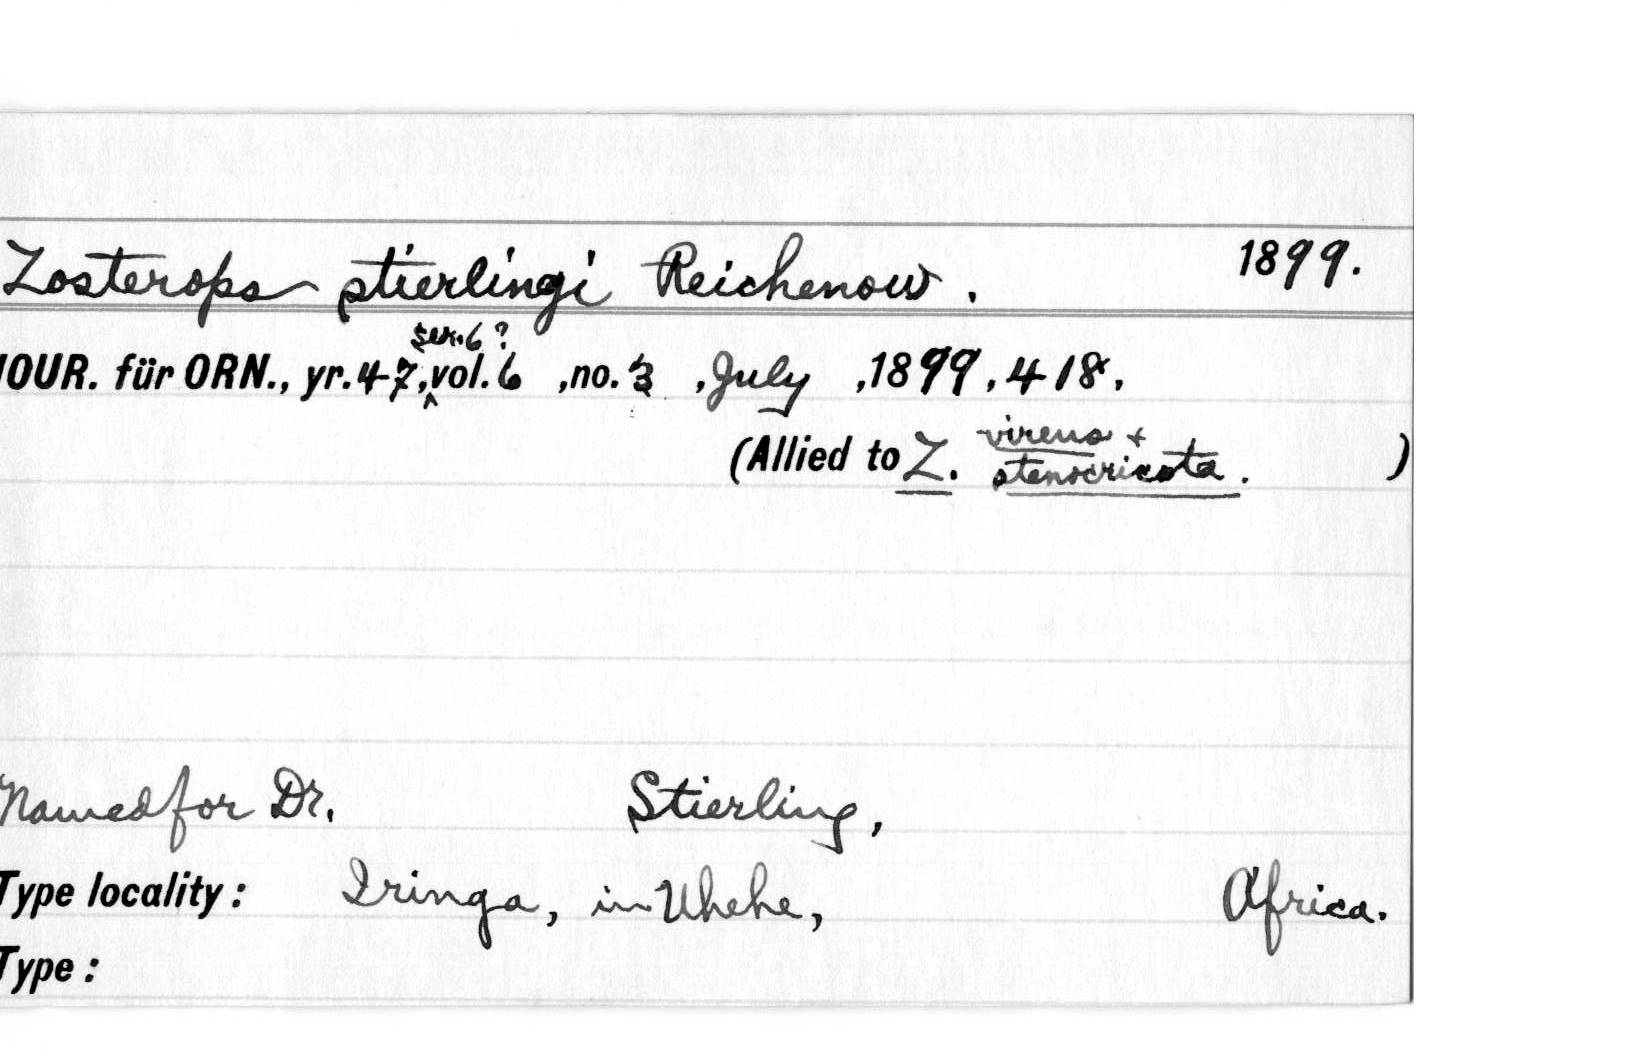 Zosterops stierlingi Reichenow. 1899.
ser. 6 ?
JOUR. für ORN., yr. 47, vol. 6 , no. 3 , July , 1899, 418.
virens +
(Allied to Z. stenocricota. )
Named for Dr. Stierling,
Type locality: Iringa, in Uhehe, Africa.
Type: